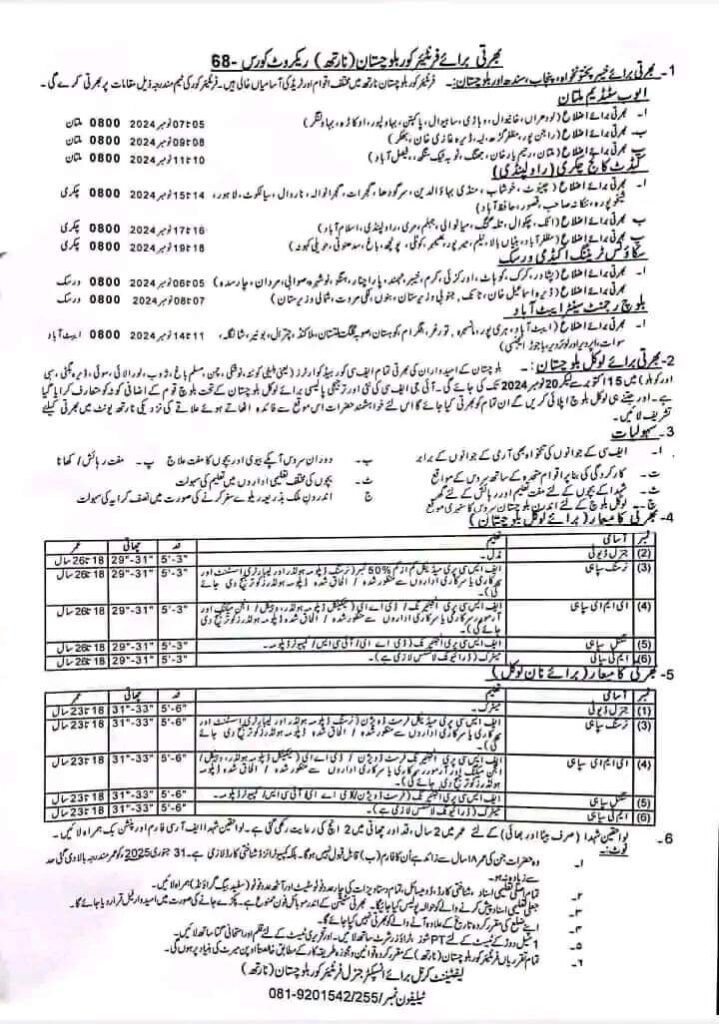 بھرتی برائے فرنٹیئر کور بلوچستان (نارتھ) ریکروٹ کورس -68
1- بھرتی برائے خیبر پختونخواہ، پنجاب، سندھ اور بلوچستان:- فرنٹیئر کور بلوچستان نارتھ میں مختلف اقوام اور ٹریڈ کی آسامیاں خالی ہیں۔ فرنٹیئر کور کی ٹیم مندرجہ ذیل مقامات پر بھرتی کرے گی۔
ایوب سٹیڈیم ملتان
ا۔ بھرتی برائے اضلاع (لودھراں، خانیوال، وہاڑی، ساہیوال، پاکپتن، بہاولپور، اوکاڑہ، بہاولنگر) 05 تا 07 نومبر 2024 0800 ملتان
ب۔ بھرتی برائے اضلاع (راجن پور، مظفر گڑھ، لیہ، ڈیرہ غازی خان، بھکر) 08 تا 09 نومبر 2024 0800 ملتان
پ۔ بھرتی برائے اضلاع (ملتان، رحیم یار خان، جھنگ، ٹوبہ ٹیک سنگھ، فیصل آباد) 10 تا 11 نومبر 2024 0800 ملتان
کیڈٹ کالج چکری (راولپنڈی)
ا۔ بھرتی برائے اضلاع (چنیوٹ، خوشاب، منڈی بہاؤالدین، سرگودھا، گجرات، گجرانوالہ، نارووال، سیالکوٹ، لاہور، 14 تا 15 نومبر 2024 0800 چکری
شیخوپورہ، ننکانہ صاحب، قصور، حافظ آباد)
ب۔ بھرتی برائے اضلاع (اٹک، چکوال، تلہ گنگ، میانوالی، جہلم، مری، راولپنڈی، اسلام آباد) 16 تا 17 نومبر 2024 0800 چکری
پ۔ بھرتی برائے اضلاع (مظفر آباد، ہٹیاں بالا، نیلم، میر پور، بھمبر، کوٹلی، پونچھ، باغ، سدھنوتی، حویلی کہوٹہ) 18 تا 19 نومبر 2024 0800 چکری
سکاؤٹس ٹریننگ اکیڈمی ورسک
ا۔ بھرتی برائے اضلاع (پشاور، کرک، کوہاٹ، اورکزئی، کرم، خیبر، مہمند، پارا چنار، ہنگو، نوشہرہ، صوابی، مردان، چارسدہ) 05 تا 06 نومبر 2024 0800 ورسک
ب۔ بھرتی برائے اضلاع (ڈیرہ اسماعیل خان، ٹانک، جنوبی وزیرستان، بنوں، لکی مروت، شمالی وزیرستان) 07 تا 08 نومبر 2024 0800 ورسک
بلوچ رجمنٹ سینٹر ایبٹ آباد
ا۔ بھرتی برائے اضلاع (ایبٹ آباد، ہری پور، مانسہرہ، تورغر، بٹگرام، کوہستان، صوبہ گلگت بلتستان، ملاکنڈ، چترال، بونیر، شانگلہ، 11 تا 14 نومبر 2024 0800 ایبٹ آباد
سوات، اپر دیر اور لوئر دیر، باجوڑ ایجنسی)
2- بھرتی برائے لوکل بلوچستان:- بلوچستان کے امیدواران کی بھرتی تمام ایف سی کور ہیڈ کوارٹرز (یعنی کوئٹہ، نوشکی، چمن، مسلم باغ، ژوب، لورالائی، سوئی، ڈیرہ بگٹی، سبی
اور کوہلو) میں 15 اکتوبر سے لیکر 20 نومبر 2024 تک کی جائے گی۔ آئی جی ایف سی کی نئی اور ترجیحی پالیسی برائے لوکل بلوچستان کے تحت بلوچ قوم کے اضافی کوٹہ کو متعارف کرایا گیا
ہے۔ اور جتنے ہی لوکل بلوچ اپلائی کریں گے ان تمام کو بھرتی کیا جائے گا اس لئے خواہشمند حضرات اس موقع سے فائدہ اٹھاتے ہوئے علاقے کی نزدیکی نارتھ یونٹ میں بھرتی کیلئے
تشریف لائیں۔
3- سہولیات
ا۔ ایف سی کے جوانوں کی تنخواہ بھی آرمی کے جوانوں کے برابر ب۔ دوران سروس آپکے بیوی اور بچوں کا مفت علاج پ۔ مفت رہائش / کھانا
ت۔ کارکردگی کی بنا پر اقوام متحدہ کے ساتھ سروس کے مواقع ٹ۔ بچوں کی مختلف تعلیمی اداروں میں تعلیم کی سہولت
ث۔ شہدا کے بچوں کے لئے مفت تعلیم اور رہائش کے لئے گھر ج۔ اندرون ملک بذریعہ ریلوے سفر کرنے کی صورت میں نصف کرایہ کی سہولت
چ۔ لوکل بلوچ کے لئے اندرون بلوچستان سروس کا سنہری موقع
4- بھرتی کا معیار (برائے لوکل بلوچستان)
نمبر آسامی تعلیم قد چھاتی عمر
(2) جنرل ڈیوٹی مڈل۔ 5'-3" 29"-31" 18 تا 26 سال
(3) نرسنگ سپاہی ایف ایس سی پری میڈیکل کم از کم 50% نمبر (نرسنگ ڈپلومہ ہولڈر اور لیبارٹری اسسٹنٹ اور 5'-3" 29"-31" 18 تا 26 سال
سرکاری یا سرکاری اداروں سے منظور شدہ / الحاق شدہ ڈپلومہ ہولڈرز کو ترجیح دی جائے
گی)۔
(4) ای ایم ای سپاہی ایف ایس سی پری انجینئرنگ / ڈی اے ای (ٹیکنیکل ڈپلومہ ہولڈرز، وہیکل / انجن میکینک اور 5'-3" 29"-31" 18 تا 26 سال
آرمورر سرکاری یا سرکاری اداروں سے منظور شدہ / الحاق شدہ ڈپلومہ ہولڈرز کو ترجیح دی
جائے گی)۔
(5) سگنل سپاہی ایف ایس سی پری انجینئرنگ (ڈی اے ای / آئی سی ایس / کمپیوٹر ڈپلومہ۔ 5'-3" 29"-31" 18 تا 26 سال
(6) ایم ٹی سپاہی میٹرک (ڈرائیونگ لائسنس لازمی ہے)۔ 5'-3" 29"-31" 18 تا 26 سال
5- بھرتی کا معیار (برائے نان لوکل)
نمبر آسامی تعلیم قد چھاتی عمر
(1) جنرل ڈیوٹی میٹرک۔ 5'-6" 31"-33" 18 تا 23 سال
(3) نرسنگ سپاہی ایف ایس سی پری میڈیکل فرسٹ ڈویژن (نرسنگ ڈپلومہ ہولڈر اور لیبارٹری اسسٹنٹ اور 5'-6" 31"-33" 18 تا 23 سال
سرکاری یا سرکاری اداروں سے منظور شدہ / الحاق شدہ ڈپلومہ ہولڈرز کو ترجیح دی جائے
گی)۔
(4) ای ایم ای سپاہی ایف ایس سی پری انجینئرنگ / فرسٹ ڈویژن / ڈی اے ای (ٹیکنیکل ڈپلومہ ہولڈرز، وہیکل / 5'-6" 31"-33" 18 تا 23 سال
انجن میکینک اور آرمورر سرکاری یا سرکاری اداروں سے منظور شدہ / الحاق شدہ ڈپلومہ
ہولڈرز کو ترجیح دی جائے گی)۔
(5) سگنل سپاہی ایف ایس سی پری انجینئرنگ (فرسٹ ڈویژن / ڈی اے ای / آئی سی ایس / کمپیوٹر ڈپلومہ۔ 5'-6" 31"-33" 18 تا 23 سال
(6) ایم ٹی سپاہی میٹرک (ڈرائیونگ لائسنس لازمی ہے)۔ 5'-6" 31"-33" 18 تا 23 سال
6- لواحقین شہدا (صرف بیٹا اور بھائی) کے لئے عمر میں 2 سال، قد اور چھاتی میں 2 انچ کی رعایت رکھی گئی ہے۔ لواحقین شہدا ایف آر سی فارم اور پنشن بک ہمراہ لائیں۔
نوٹ:-
۱۔ وہ حضرات جن کی عمر ۱۸ سال سے زائد ہے اُن کا فارم (ب) قابل قبول نہیں ہوگا۔ بلکہ کمپیوٹرائزڈ شناختی کارڈ لازمی ہے۔ 31 جنوری 2025 کو عمر مندرجہ بالا دی گئی حد
سے زیادہ نہ ہو۔
۲۔ تمام اصلی تعلیمی اسناد، شناختی کارڈ، ڈومیسائل، تمام دستاویزات کی چار عدد فوٹو سٹیٹ اور آٹھ عدد فوٹو (سفید بیک گراؤنڈ) ہمراہ لائیں۔
۳۔ جعلی تعلیمی اسناد پیش کرنے والے کو حوالہ پولیس کیا جائیگا۔ بھرتی سیکشن کے اندر موبائل فون ممنوع ہے۔ پکڑے جانے کی صورت میں امیدوار نااہل قرار دیا جائے گا۔
۴۔ اپنے ضلع کی مقرر کردہ تاریخ کے علاوہ آنے والے کو بھرتی نہیں کیا جائے گا۔
۵۔ 1 میل دوڑ کے ٹیسٹ کے لئے PT شوز، ٹراؤزر، شرٹ ساتھ لائیں۔ اور تحریری ٹیسٹ کے لئے قلم اور امتحانی گتا ساتھ لائیں۔
۶۔ تمام تقرریاں فرنٹیئر کور بلوچستان (نارتھ) کے مقرر کردہ قوانین و مجوزہ طریقہ کار کے مطابق خالصتاً اوپن میرٹ کی بنیاد پر ہوں گی۔
لیفٹیننٹ کرنل برائے انسپکٹر جنرل فرنٹیئر کور بلوچستان (نارتھ)
ٹیلیفون نمبر / 081-9201542/255